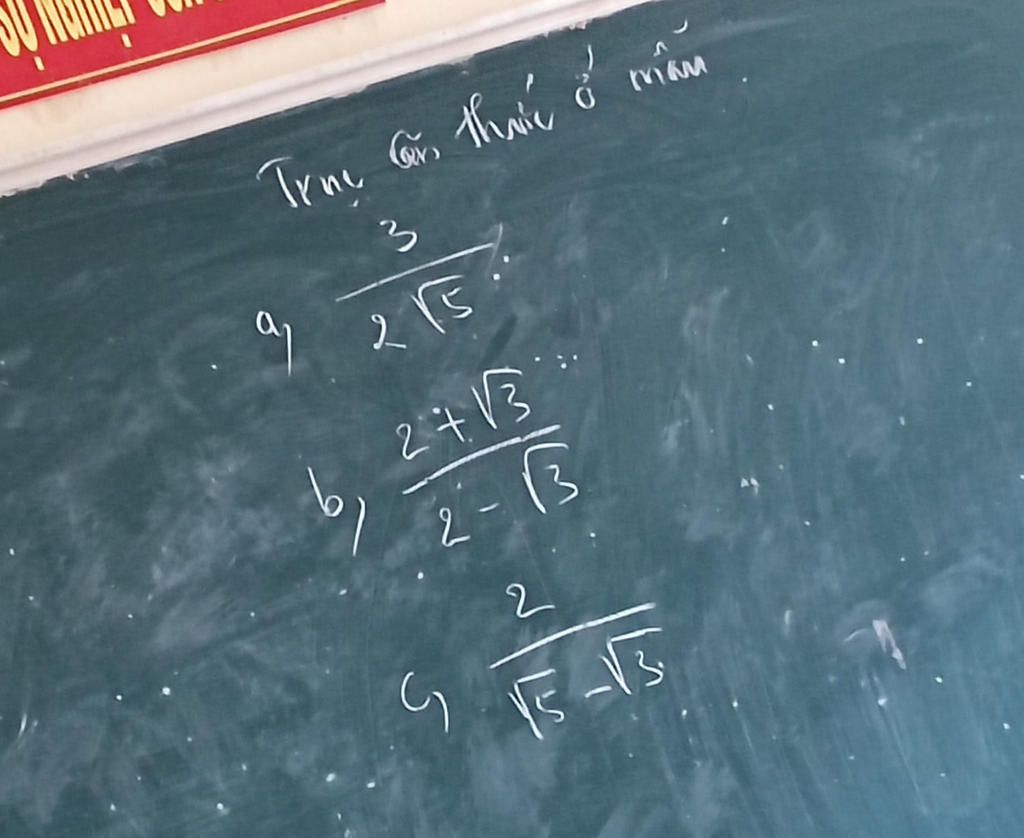 SỰ NGHIỆP
Trục căn thức ở mẫu
a, 3 / 2√5
b, 2+√3 / 2-√3
c, 2 / √5-√3